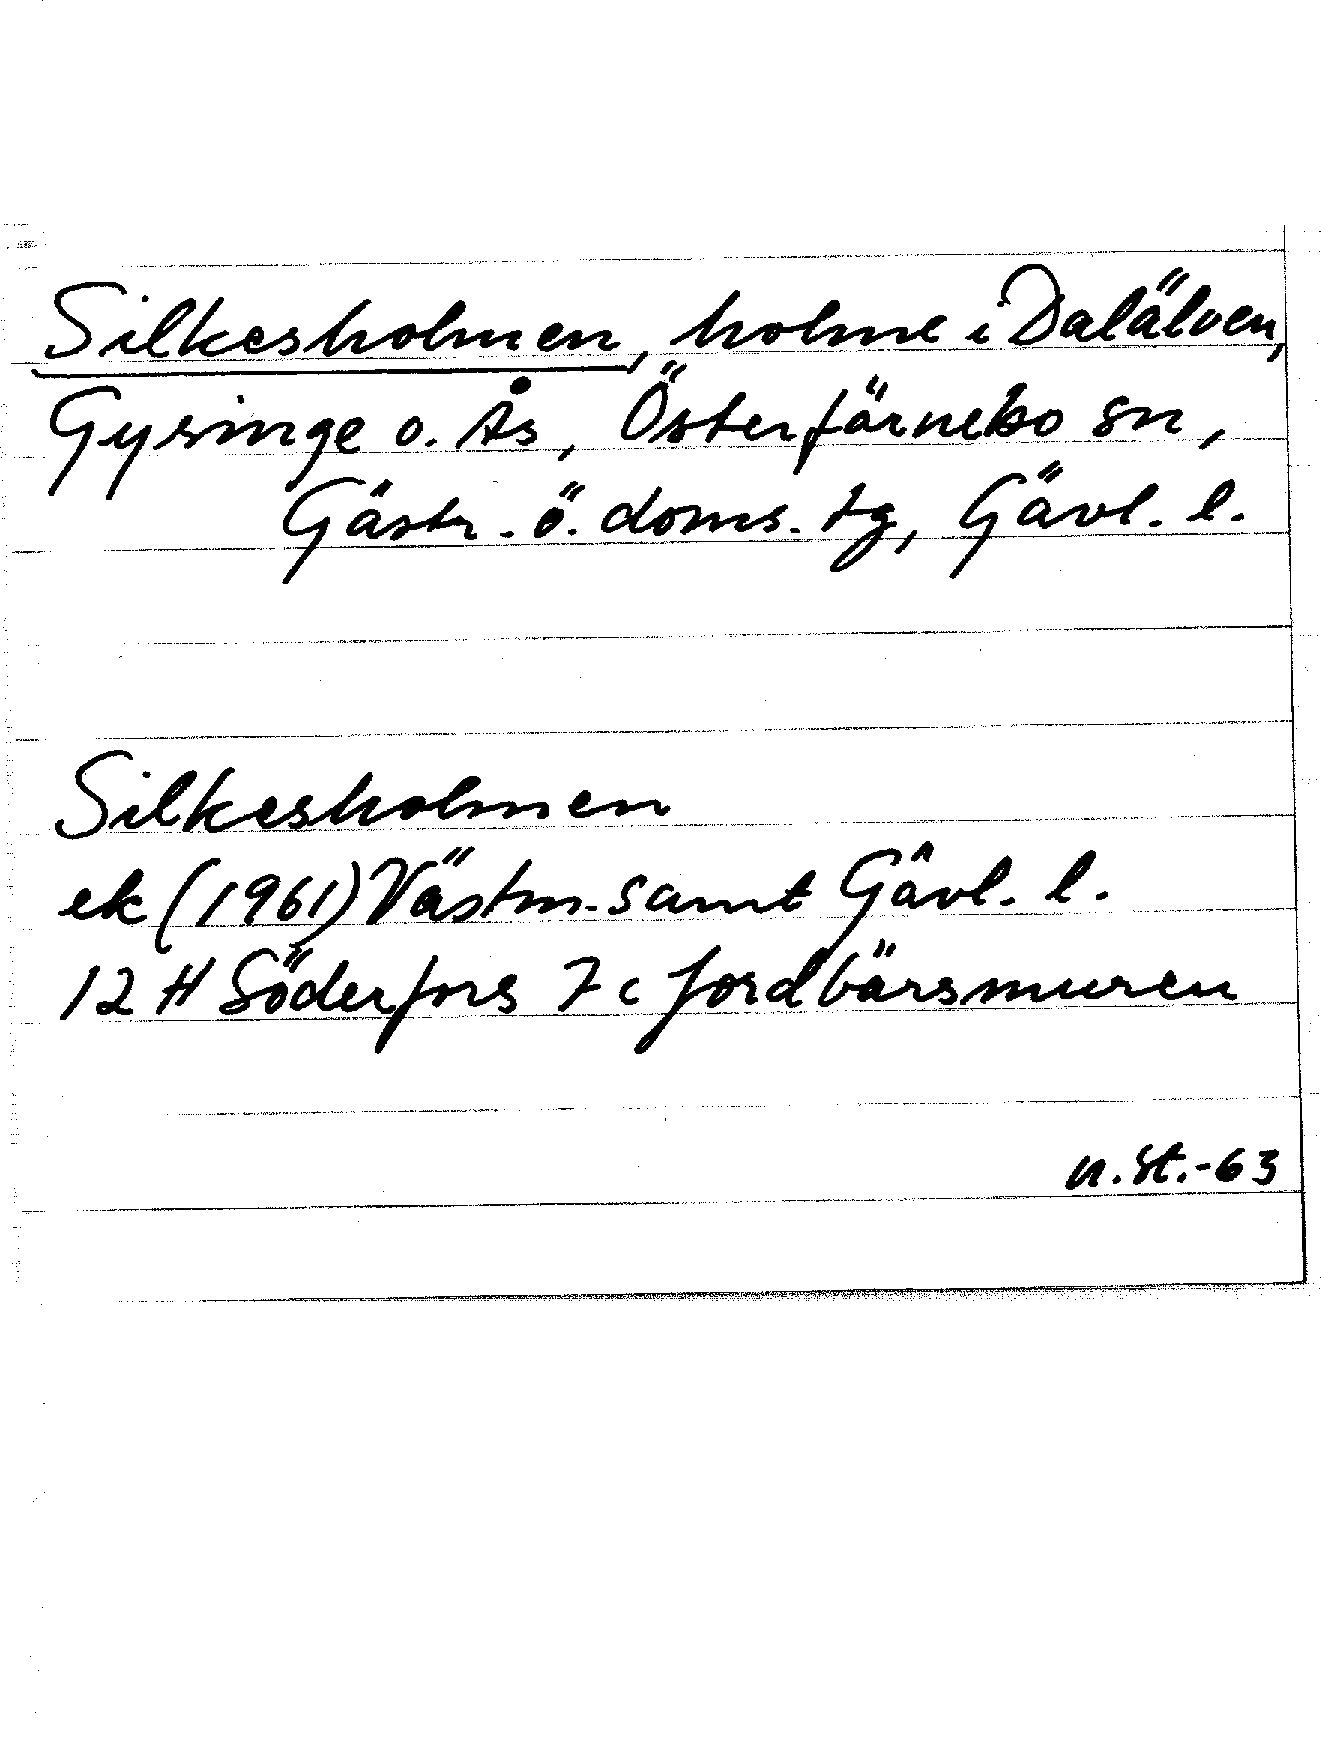 Silkesholmen, holme i Dalälven,
Gysinge o. Ås, Österfärnebo sn,
Gästr. ö. doms. tg, Gävl. l.
Silkesholmen
ek (1961) Västm. samt Gävl. l.
12 H Söderfors 7 c Jordbärsmuren
n. St.-63